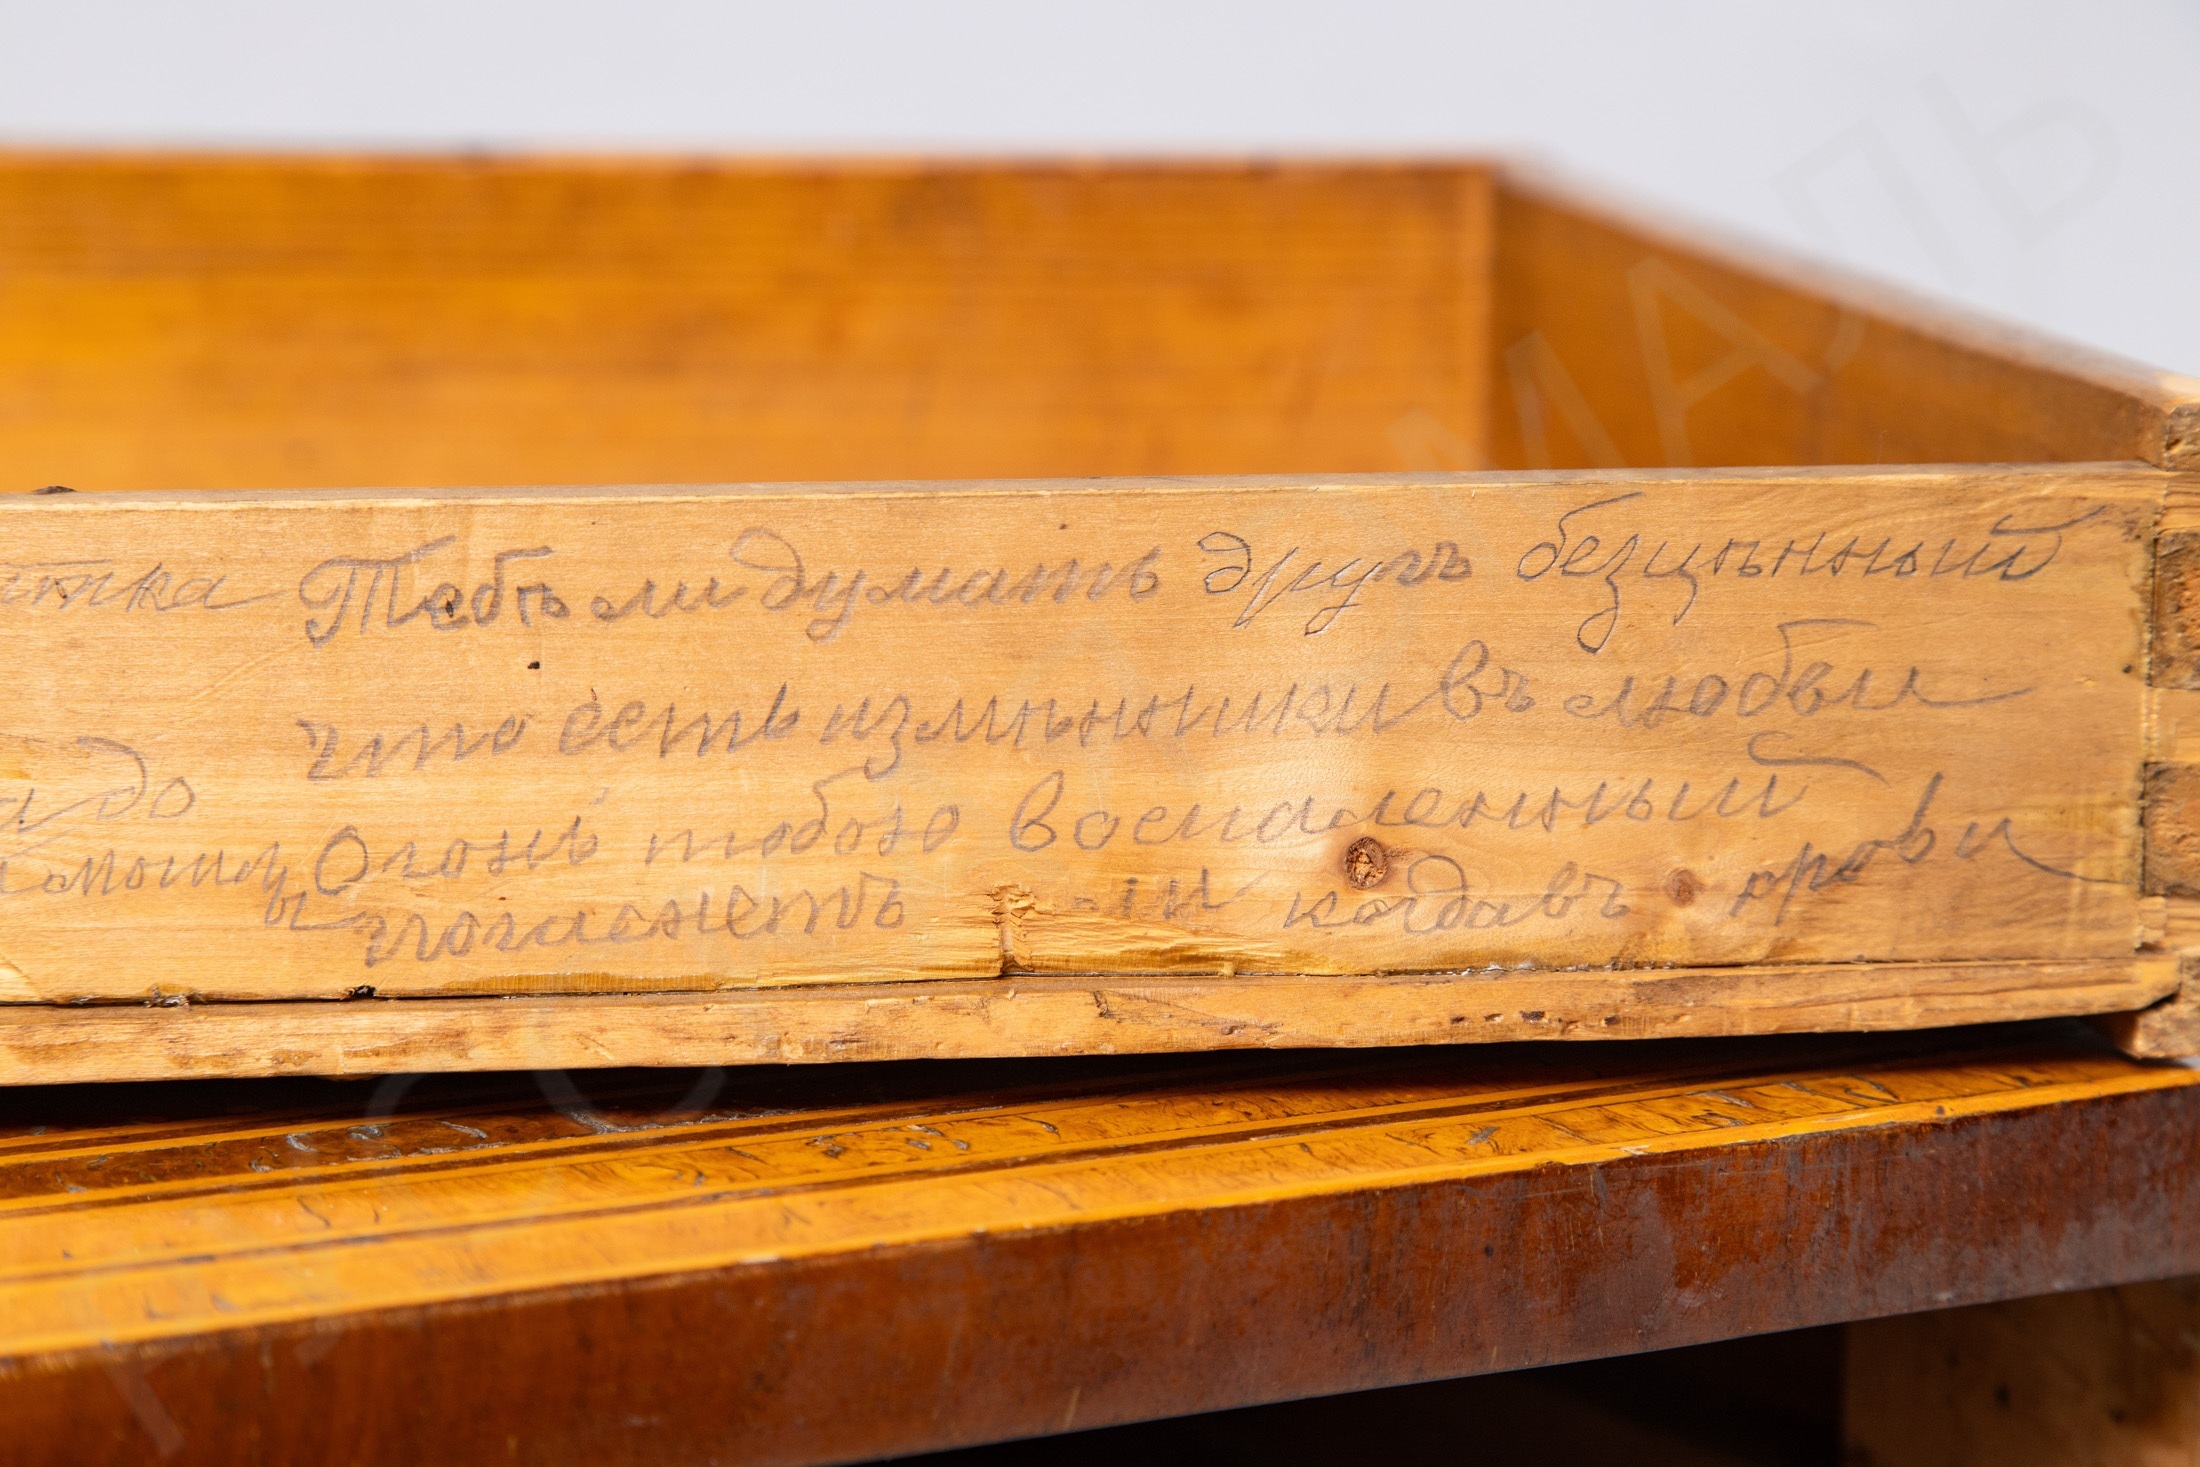 Тебѣ ли думать другъ безцѣнный
что есть измѣнники въ любви
до Огонь тобою воспаленный
могилы погаснетъ ли когда въ крови